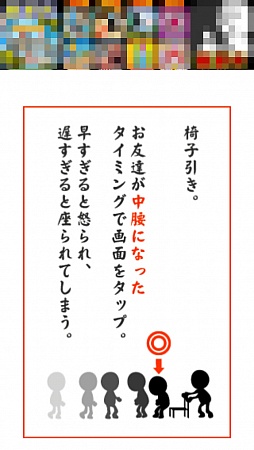 椅子引き。
お友達が中腰になった
タイミングで画面をタップ。
早すぎると怒られ、
遅すぎると座られてしまう。